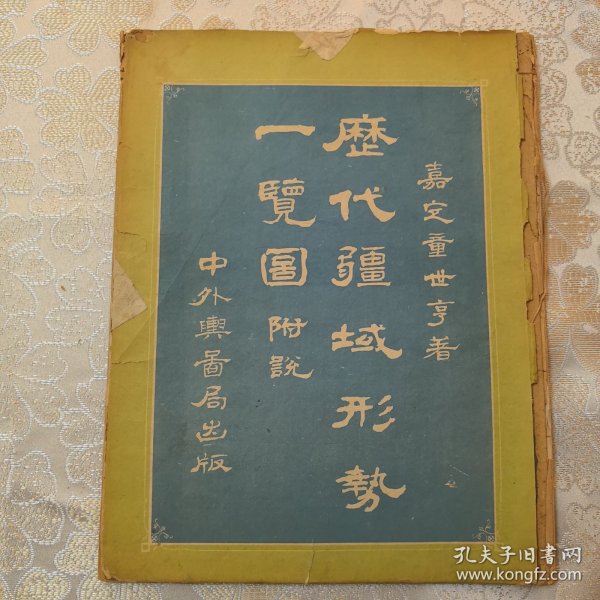 嘉定童世亨著
歷代疆域形勢
一覽圖附説
中外輿圖局出版
孔夫子旧书网
www.kongfz.com